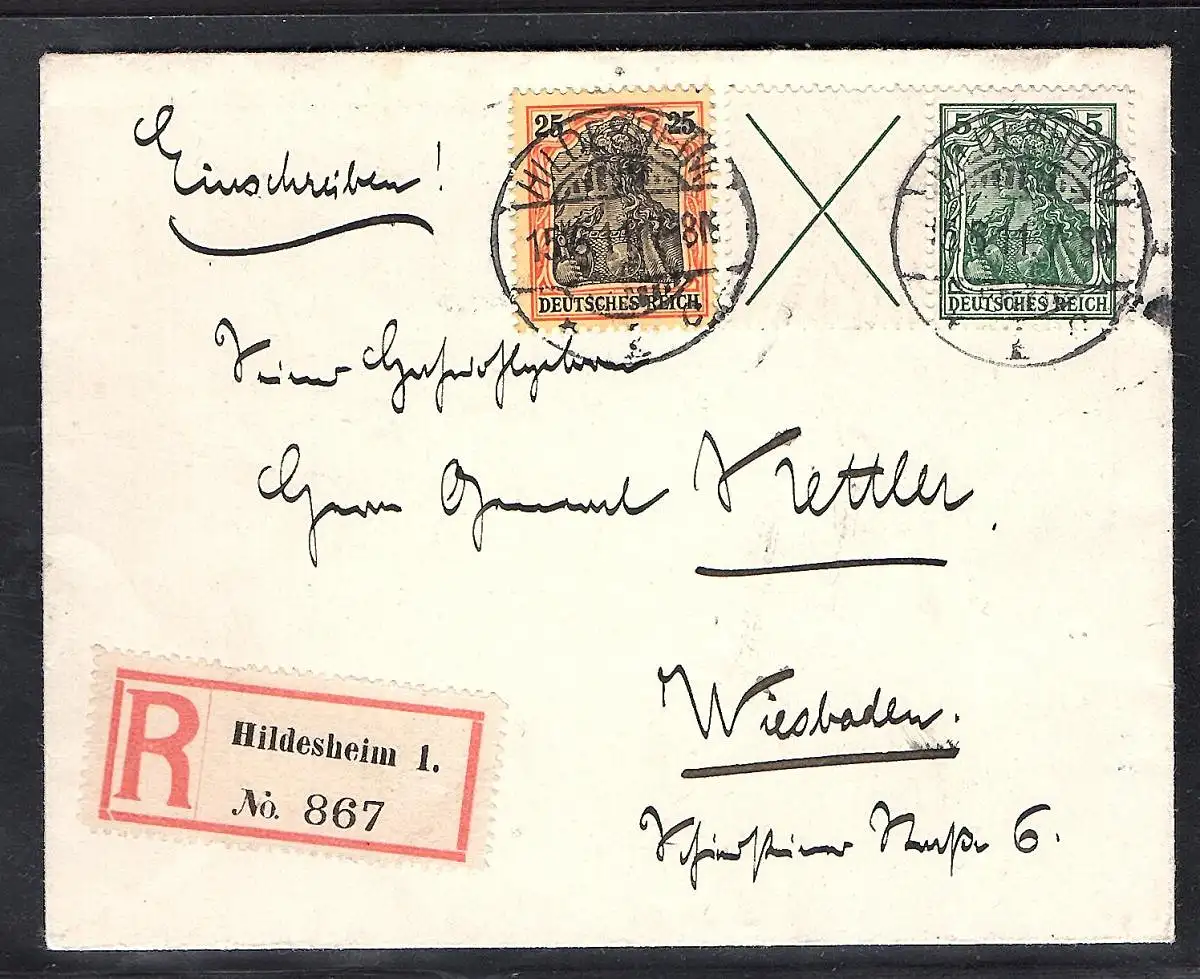 Einschreiben!
25 25
DEUTSCHES REICH
5 5
DEUTSCHES REICH
HILDESHEIM
HILDESHEIM
Seiner Hochwohlgeboren
Herrn General Kettler
Wiesbaden.
Schiersteiner Straße 6.
R
Hildesheim 1.
No. 867